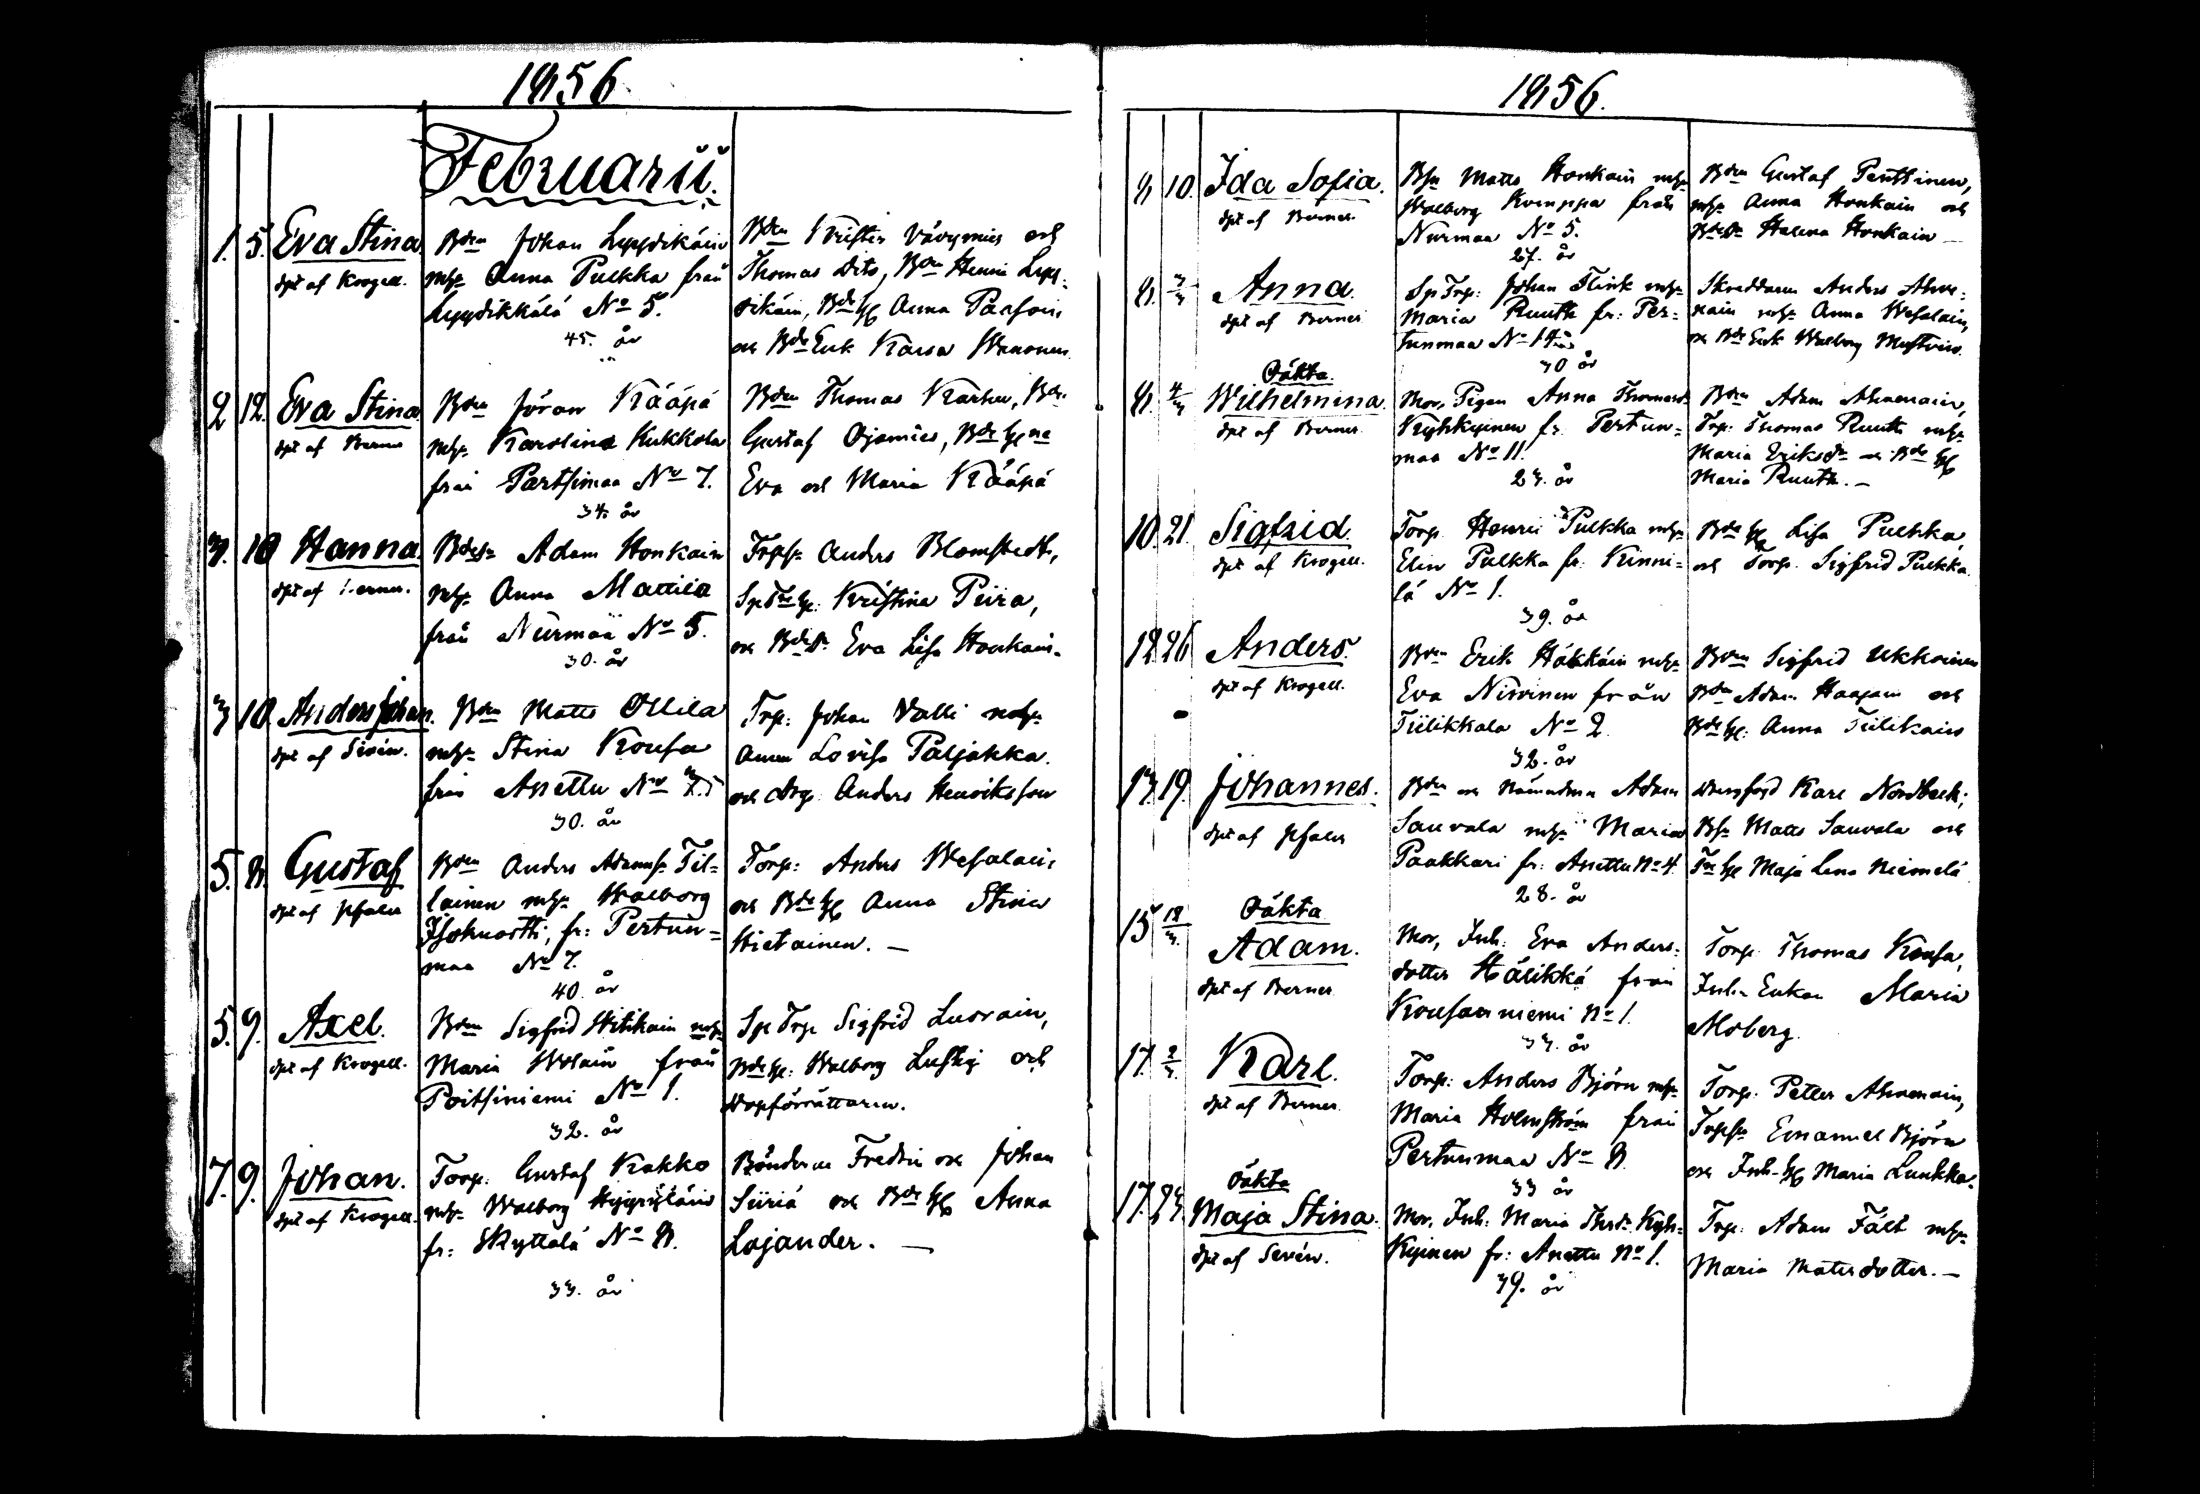 1856.
Februarii.
1. 5. Eva Stina
döpt af Krogell.
Bdn Johan Lyydikäin
mh. Anna Pulkka från
Lyydikkälä No 5.
45. år
Bdn Krister Vävymies och
Thomas dito, Bdn Henric Lyy-
dikäin, Bde H. Anna Paasoin
och Bde Enk. Kaisa Wanonen
2 12. Eva Stina
döpt af Berner
Bdn Jöran Kääpä
mh. Karolina Kukkola
från Partsimaa No 7.
34. år
Bdn Thomas Karhu, Bdn
Gustaf Ojamies,
Eva och Maria Kääpä
3. 10 Hanna.
döpt af Berner.
Adam Honkain
mh. Anna Mattila
från Nurmaa No 5.
30. år
Anders Blomstedt,
Kristina Piira,
och Eva Lisa Honkain.
3 10. Anders Johan.
döpt af Sirén.
Bdn Matts Ollila
mh. Stina Kousa
från Anettu No
30. år
Trp: Johan Valli mh.
Anna Lovisa Paljakka.
och Anders Henriksson
5. 8. Gustaf
döpt af Pfaler
Bdn Anders Adamss. Til-
lainen mh. Walborg
Isohuotti, fr: Pertun-
maa No 7.
40. år
Torp: Anders Wesalain
och Bde H. Anna Stina
Hietainen. —
5. 9. Axel.
döpt af Krogell.
Bdn Sigfrid Hitikain mh.
Maria Wolain från
Poitsiniemi No 1.
32. år
Sp Trp. Sigfrid Luorain,
Bde H: Walborg Lustig och
Dopförrättaren.
7. 9. Johan.
döpt af Krogell.
Torp. Gustaf Kakko
mh. Walborg
fr: Skyttälä No 8.
33. år
Bönderne Fredric och Johan
Siiriä och Bde H. Anna
Lojander. —
1856.
8 10. Ida Sofia.
döpt af Berner.
Matts Honkain mh.
Walborg Kumppa från
Nurmaa No 5.
27. år
Bdn Gustaf Penttinen,
mh. Anna Honkain och
Helena Honkain —
8. 3/3 Anna.
döpt af Berner
Sp Trp: Johan Flink mh.
Maria Ruuth fr: Per-
tunmaa No
30 år
Skreddaren Anders Ahve-
nain mh. Anna Wesalain,
och Bde Enk Walborg
8. 4/3 Oäkta.
Wilhelmina.
döpt af Berner
Mor, Pigan Anna Thomasd.
Kyhkyinen fr. Pertun-
maa No 11.
23. år
Bdn Adam Ahvenain,
Trp: Thomas Ruuth mh.
Maria Eriksdr och Bde H.
Maria Ruuth. —
10. 21. Sigfrid.
döpt af Krogell.
Torp. Henric Pulkka mh.
Elin Pulkka fr. Kinni-
lä No 1.
39. år
Bde H. Lisa Pulkka,
och Torp. Sigfrid Pulkka.
12 26 Anders.
döpt af Krogell.
Bdn Erik Häkkäin mh.
Eva Nirvinen från
Tiilikkala No 2
32. år
Bdn Sigfrid Ukkoinen
Bdn Adam Haajain och
Bde H. Anna Tiilikain
13. 19. Johannes.
döpt af Pfaler
Bdn och Nämndem. Adam
Sauvala mh. Maria
Paakkari fr: Anettu No 4.
28. år
Karl Nordbeck,
Matts Sauvala och
Maja Lena Niemelä
15 12/3. Oäkta
Adam.
döpt af Berner
Mor, Inh: Eva Anders-
dotter Härikkä från
Kousanniemi No 1.
33. år
Torp. Thomas Kousa,
Inh. Enkan Maria
Moberg.
17. 2/3 Karl.
döpt af Berner
Torp: Anders Björn mh.
Maria Holmström från
Pertunmaa No 8.
33 år
Torp. Petter Ahvenain,
Emanuel Björn
och Inh. H. Maria Luukka.
17. 23. Oäkta
Maja Stina.
döpt af Sevén.
Mor, Inh: Maria Thsdr Kyh-
kyinen fr: Anettu No 1.
39. år
Trp: Adam Fält mh.
Maria Matsdotter. —